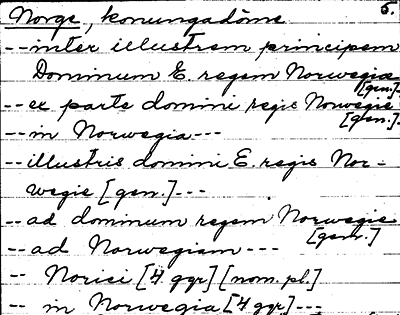 5.
Norge, konungadöme
-- inter illustrem principem
Dominum E. regem Norwegie
[gen.]
-- ex parte domini regis Norwegie
[gen.]
-- in Norwegia ---
-- illustris domini E. regis Nor-
wegie [gen.] ---
-- ad dominum regem Norwegie
[gen.]
-- ad Norwegiam ---
-- Norici [4 ggr] [nom. pl.]
-- in Norwegia [4 ggr] ---